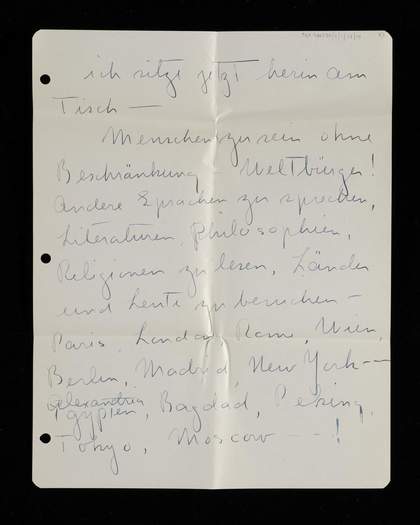 ich sitze jetzt herin am
Tisch —
Menschen zu sein ohne
Beschränkung Weltbürger!
Andere Sprachen zu sprechen,
Literaturen, Philosophien,
Religionen zu lesen, Länder
und Leute zu besuchen —
Paris, London, Rome, Wien,
Berlin, Madrid, New York —
Alexandria
Egypten, Bagdad, Peking,
Tokyo, Moscow — — !